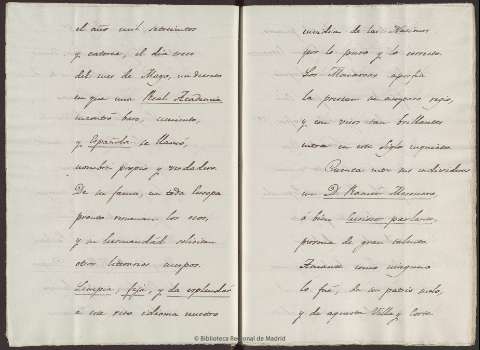 el año mil setecientos
y catorce, el dia trece
del mes de Mayo, un decreto
en que una Real Academia
nuestro buen, 
y Española se llamó,
nombre propio y verdadero.
De su fama, en toda Europa
pronto resuenan los ecos,
y su hermandad solicitan
otros literarios cuerpos.
Limpia, fija, y da esplendor
á ese rico idioma nuestro
envidia de las Naciones
por lo puro y lo correcto.
Los Monarcas á porfia
la prestan su apoyo regio,
y con visos tan brillantes
entra en este Siglo inquieto.
Cuenta entre sus individuos
un D. Ramon
ó bien curioso parlante,
persona de gran talento
Amante como ninguno
lo fué, de su patrio suelo,
y de aquesta Villa y Corte
© Biblioteca Regional de Madrid